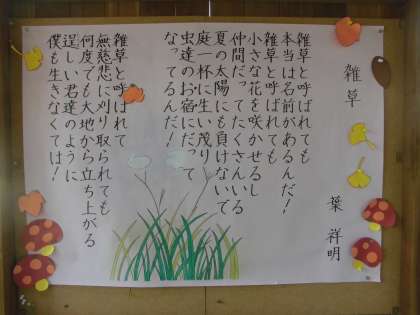 雑草
葉 祥明
雑草と呼ばれても
本当は名前があるんだ!
雑草と呼ばれても
小さな花を咲かせるし
仲間だってたくさんいる
夏の太陽にも負けないで
庭一杯に生い茂り
虫達のお宿にだって
なってるんだ!
雑草と呼ばれて
無慈悲に刈り取られても
何度でも大地から立ち上がる
逞しい君達のように
僕も生きなくては!